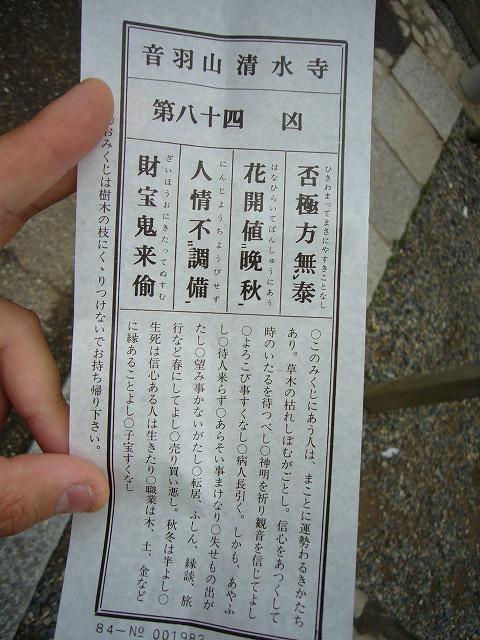 音羽山清水寺
第八十四 凶
ひきわまってまさにやすきことなし
否極方無泰
はなひらいてばんしゅうにあう
花開値晩秋
にんじょうちょうびせず
人情不調備
ざいほうおにきたってぬすむ
財宝鬼来偷
〇このみくじにあう人は、まことに運勢わるきかたち
あり。草木の枯れしぼむがごとし。信心をあつくして
時のいたるを待つべし〇神明を祈り観音を信じてよし
〇よろこび事すくなし〇病人長引く。しかも、あやふ
し〇待人来らず〇あらそい事まけなり〇失せもの出が
たし〇望み事かないがたし〇転居、ふしん、縁談、旅
行など春にしてよし〇売り買い悪し。秋冬は半よし〇
生死は信心ある人は生きたり〇職業は木、土、金など
に縁あることよし〇子宝すくなし
おみくじは樹木の枝にくゝりつけないでお持ち帰り下さい。
84-№ 001982